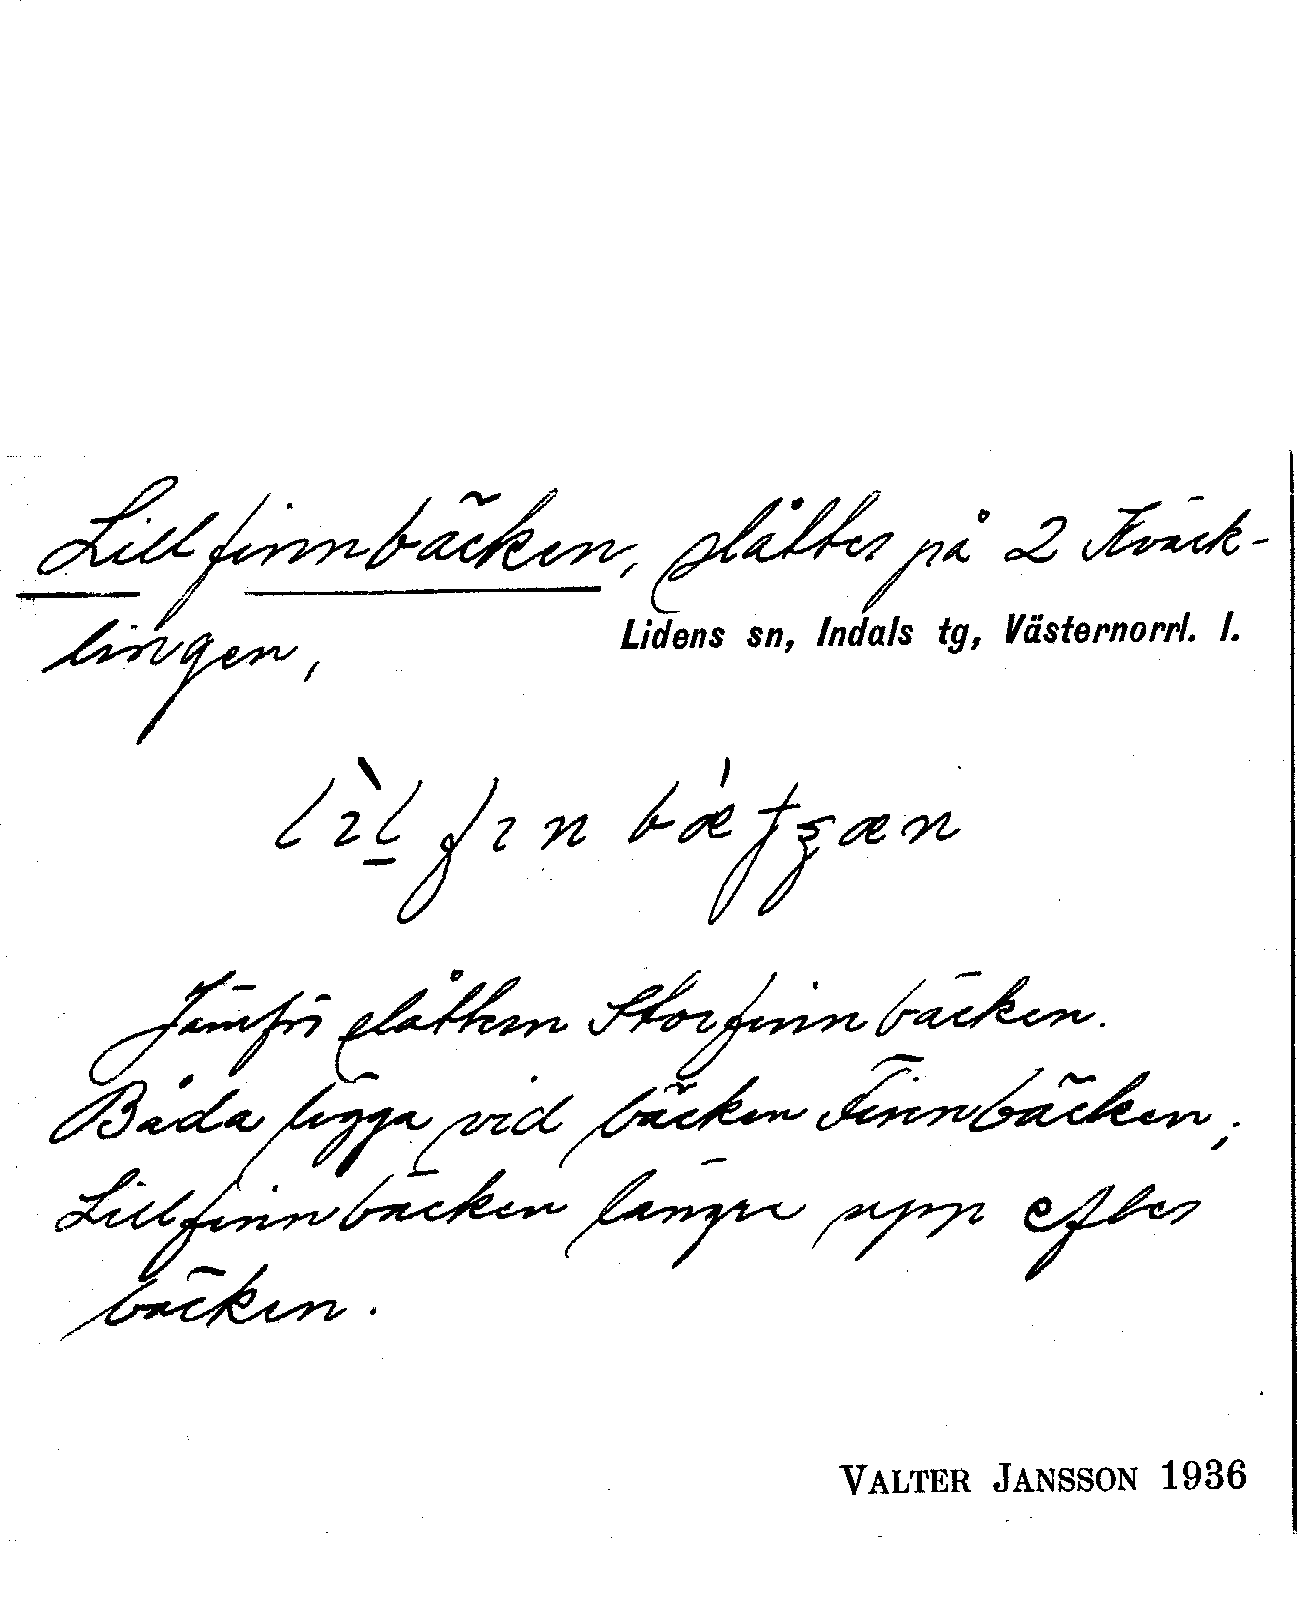 Lillfinnbäcken, slåtter på 2 Kväck-
lingen,
Lidens sn, Indals tg, Västernorrl. l.
Jämför slåttern Storfinnbäcken.
Båda ligga vid bäcken Finnbäcken,
Lillfinnbäcken längre upp efter
bäcken.
VALTER JANSSON 1936